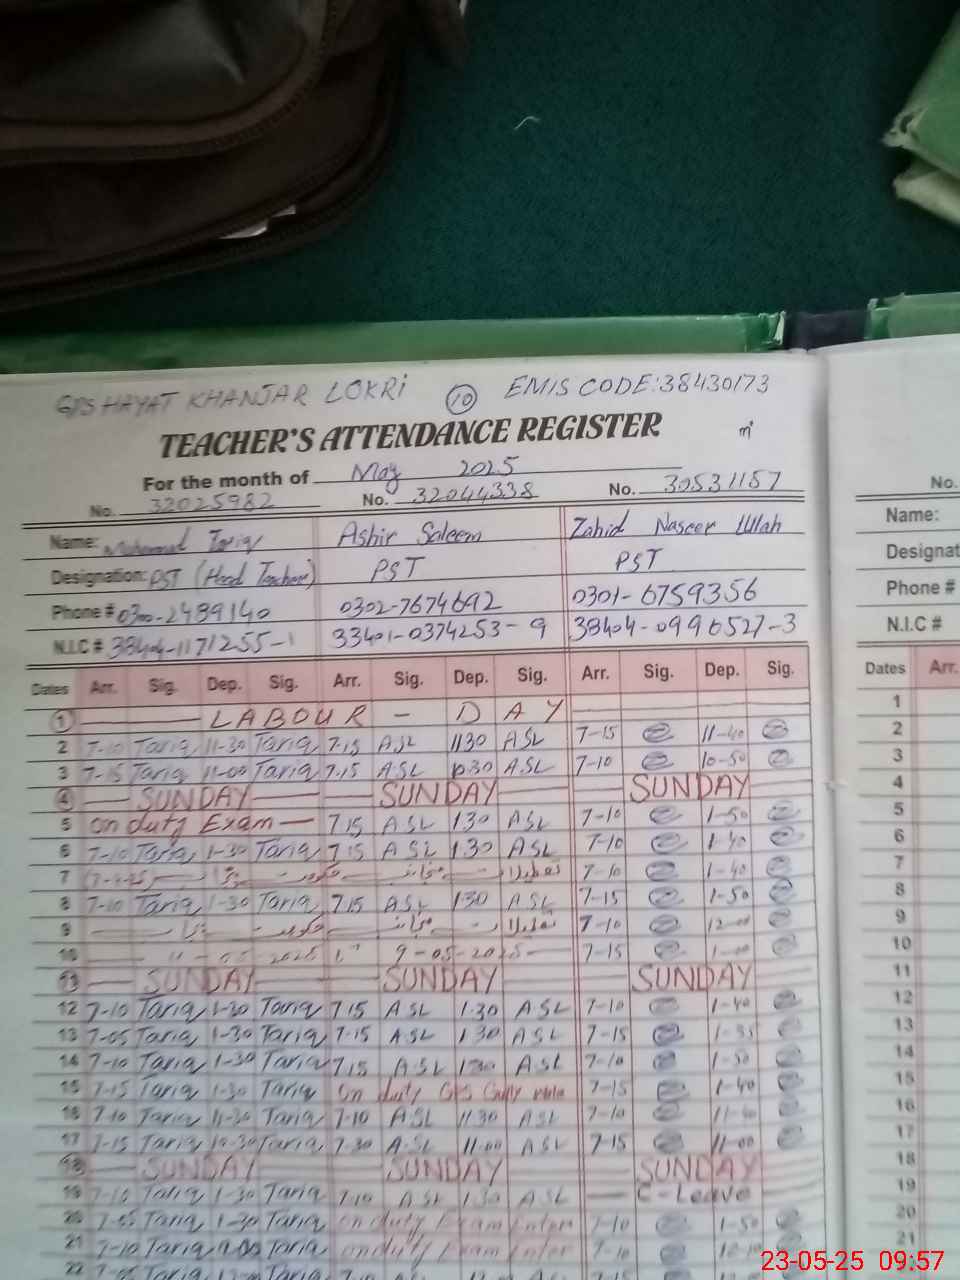 GPS HAYAT KHANJAR LOKRi 10 EMIS CODE:38430173
TEACHER'S ATTENDANCE REGISTER
For the month of May 2025
No. 32025982 No. 32044338 No. 30531157 No.
Name: Tariq Ashir Saleem Zahid Naseer Ullah Name:
Designation: PST (Head Teacher) PST PST Designat
Phone # 0300-2489140 0302-7674692 0301-6759356 Phone #
N.I.C # 38404-1171255-1 33401-0374253-9 38404-0996527-3 N.I.C #
Dates Arr. Sig. Dep. Sig. Arr. Sig. Dep. Sig. Arr. Sig. Dep. Sig. Dates Arr.
1 LABOUR - DAY 1
2 7-10 Tariq 11-30 Tariq 7.15 ASL 1130 ASL 7-15 11-40 2
3 7-15 Tariq 11-00 Tariq 7.15 ASL ASL 7-10 10-50 3
4 SUNDAY SUNDAY SUNDAY 4
5 on duty Exam 7 15 ASL 1.30 ASL 7-10 1-50 5
6 7-10 Tariq 1-30 Tariq 7 15 ASL 1.30 ASL 7-10 1-40 6
7 تعطیلات 7-10 1-40 7
8 7-10 Tariq 1-30 Tariq 7.15 ASL 1.30 ASL 7-15 1-50 8
9 7-10 12-00 9
10 11-05-2025 9-05-2025 7-15 1-00 10
11 SUNDAY SUNDAY SUNDAY 11
12 7-10 Tariq 1-30 Tariq 7.15 ASL 1.30 ASL 7-10 1-40 12
13 7-05 Tariq 1-30 Tariq 7-15 ASL 1.30 ASL 7-15 13
14 7-10 Tariq 1-30 Tariq 7.15 ASL ASL 7-10 1-50 14
15 7-15 Tariq 1-30 Tariq on duty GPS 7-15 1-40 15
16 7-10 Tariq 11-30 Tariq 7-10 ASL 11.30 ASL 7-10 16
17 7-15 Tariq Tariq 7-30 ASL 11.00 ASL 7-15 11-00 17
18 SUNDAY SUNDAY SUNDAY 18
19 7-10 Tariq 1-30 Tariq 7-10 ASL 1.30 ASL C-Leave 19
20 7-05 Tariq 1-30 Tariq on duty Exam 7-10 1-50 20
21 7-10 Tariq Tariq on duty Exam 7-10 21
22
23-05-25 09:57